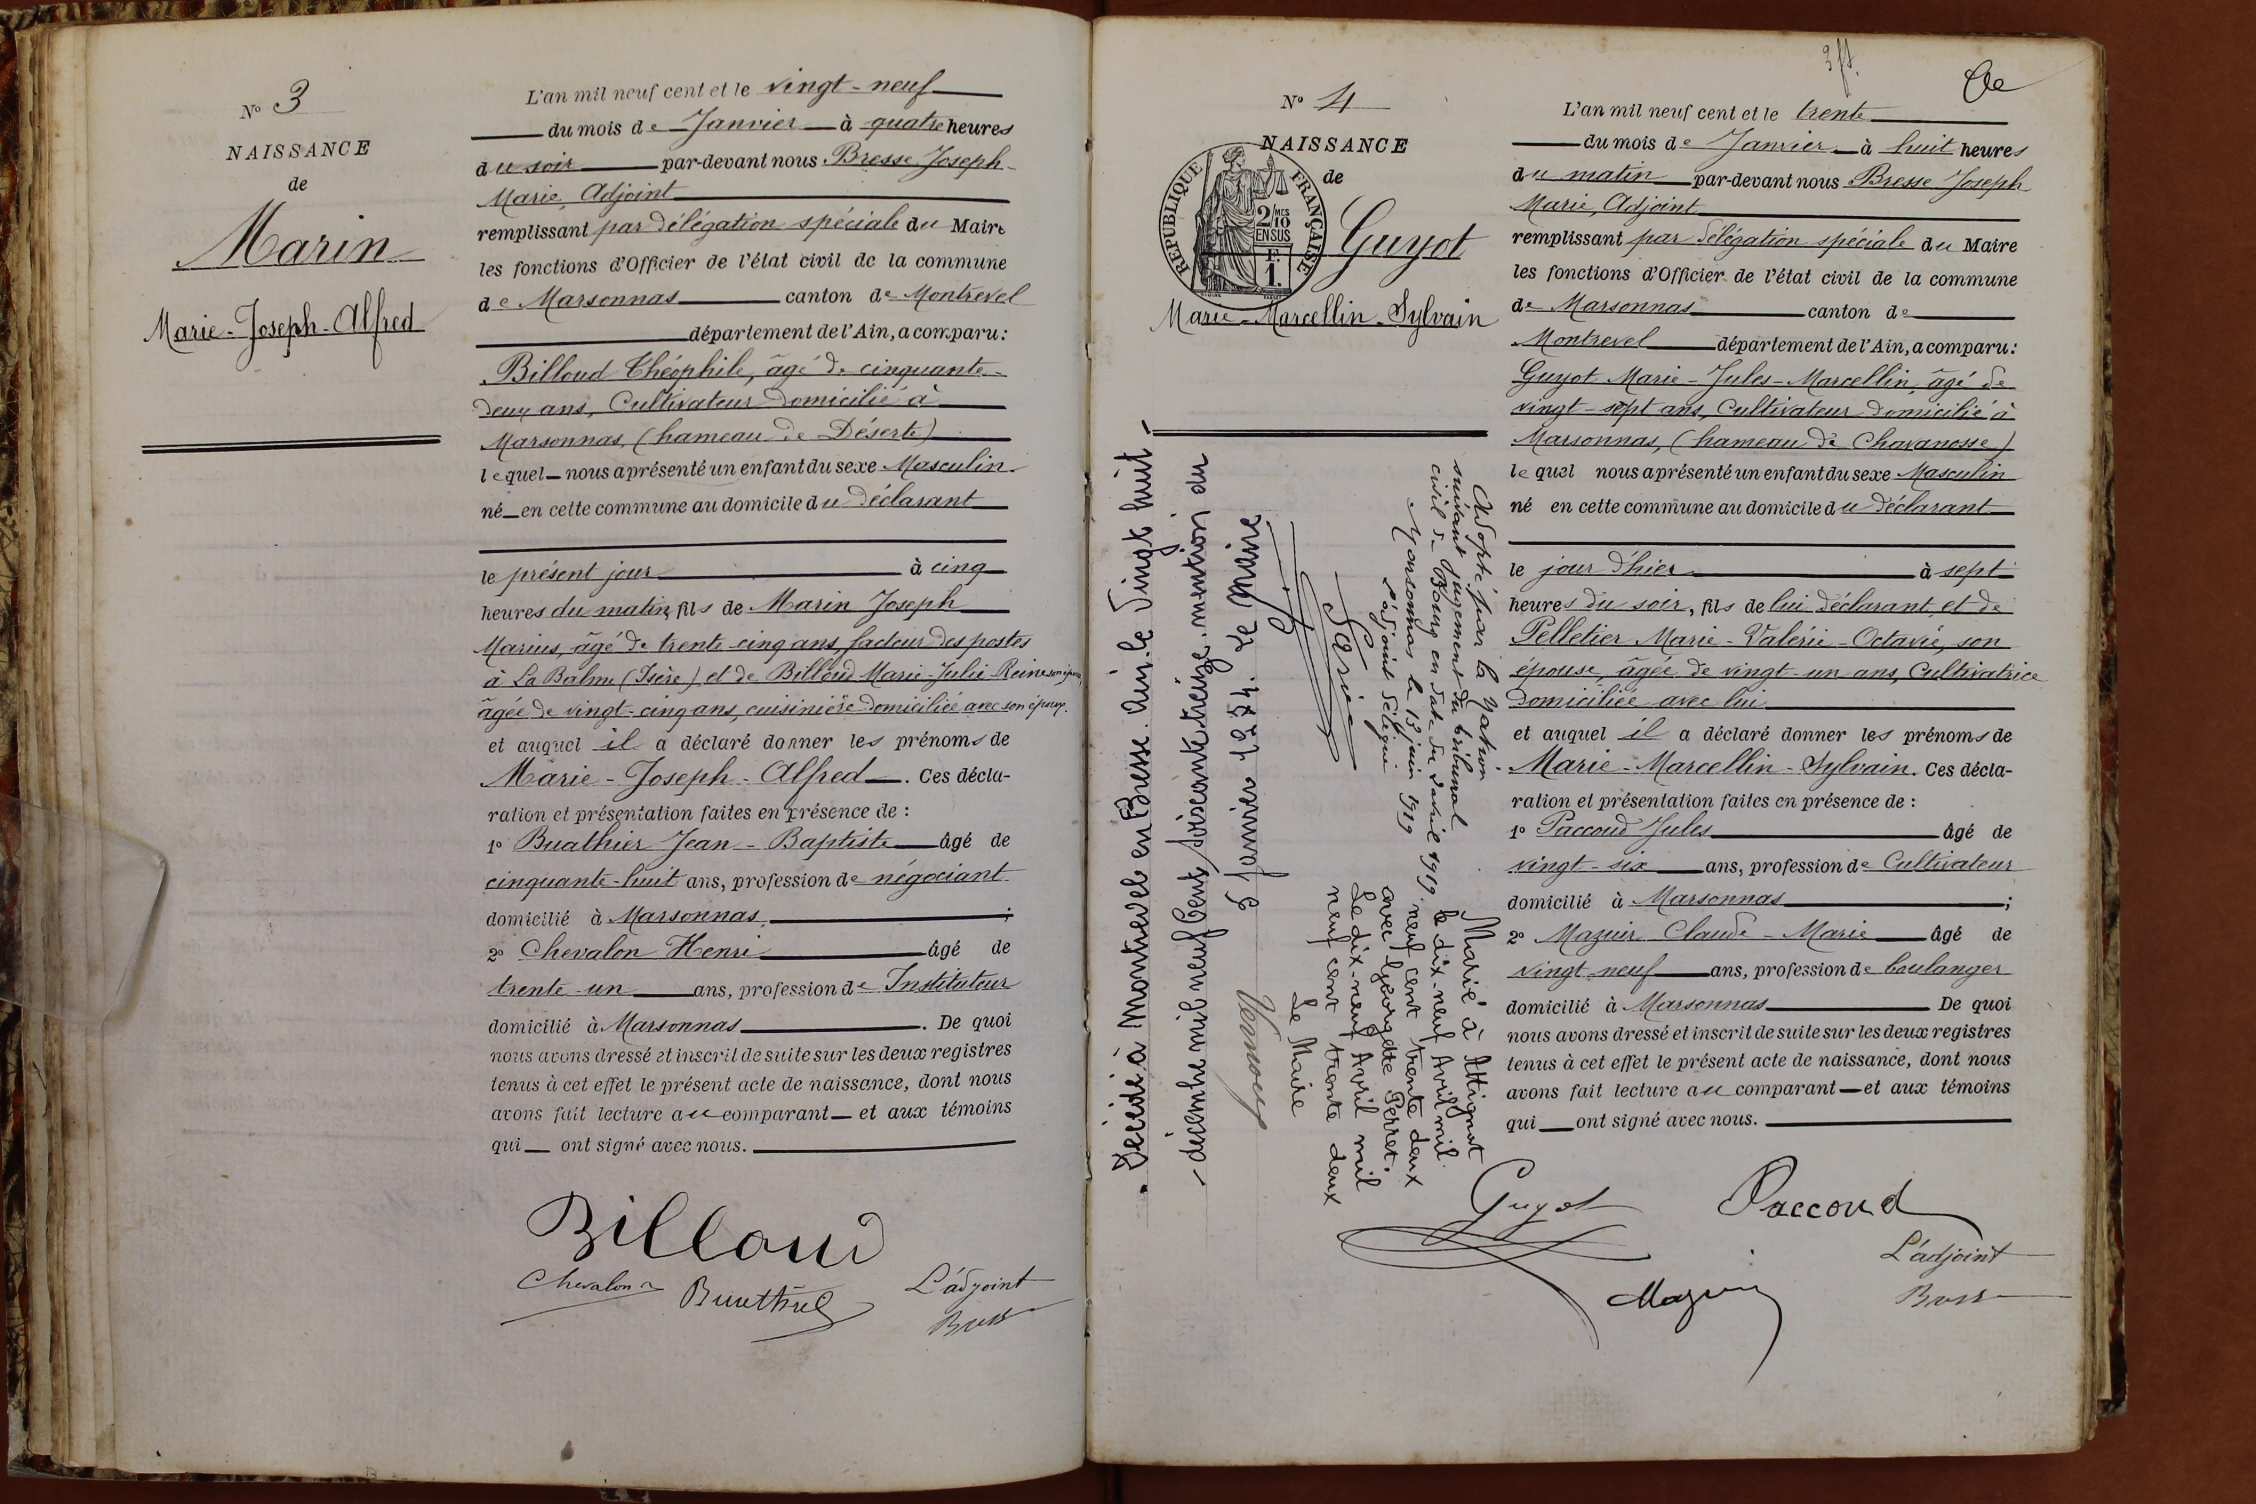 N° 3
NAISSANCE
de
Marin
Marie-Joseph-Alfred
L'an mil neuf cent et le vingt-neuf
du mois de Janvier à quatre heures
du soir par-devant nous Bresse Joseph
Marie, Adjoint
remplissant par délégation spéciale du Maire
les fonctions d'Officier de l'état civil de la commune
de Marsonnas canton de Montrevel
département de l'Ain, a comparu:
Billoud Théophile, âgé de cinquante-
deux ans, Cultivateur domicilié à
Marsonnas, (hameau de Déserte)
lequel nous a présenté un enfant du sexe Masculin
né en cette commune au domicile du déclarant
le présent jour à cinq
heures du matin, fils de Marin Joseph
Marius, âgé de trente-cinq ans, facteur des postes
à La Balme (Isère) et de Billoud Marie-Julie-Reine son épouse,
âgée de vingt-cinq ans, cuisinière domiciliée avec son époux.
et auquel il a déclaré donner les prénoms de
Marie-Joseph-Alfred. Ces décla-
ration et présentation faites en présence de :
1° Buathier Jean-Baptiste âgé de
cinquante-huit ans, profession de négociant
domicilié à Marsonnas ;
2° Chevalon Henri âgé de
trente-un ans, profession de Instituteur
domicilié à Marsonnas. De quoi
nous avons dressé et inscrit de suite sur les deux registres
tenus à cet effet le présent acte de naissance, dont nous
avons fait lecture au comparant et aux témoins
qui ont signé avec nous.
Billoud
Chevalon Buathier L'adjoint
Bresse
de
N° 4
NAISSANCE
de
RÉPUBLIQUE FRANÇAISE
2/10 MES
EN SUS
F.
1.
Guyot
Marie-Marcellin-Sylvain
Adopté par la Nation
suivant jugement du tribunal
civil de Bourg en date du 5 avril 1919.
Marsonnas le 13 juin 1919
l'adjoint délégué
Marié à Attignat
le dix-neuf Avril mil
neuf cent trente deux
avec Georgette Perret.
Le dix-neuf Avril mil
neuf cent trente deux
Le Maire
Vernoux
Décédé à Montrevel en Bresse. Ain. le Vingt huit
décembre mil neuf Cent soixante treize. mention du
5 Janvier 1974. Le Maire
L'an mil neuf cent et le trente
du mois de Janvier à huit heures
du matin par-devant nous Bresse Joseph
Marie, Adjoint
remplissant par délégation spéciale du Maire
les fonctions d'Officier de l'état civil de la commune
de Marsonnas canton de
Montrevel département de l'Ain, a comparu:
Guyot Marie-Jules-Marcellin, âgé de
vingt-sept ans, Cultivateur domicilié à
Marsonnas, (hameau de Chavanosse)
lequel nous a présenté un enfant du sexe Masculin
né en cette commune au domicile du déclarant
le jour d'hier à sept
heures du soir, fils de lui déclarant et de
Pelletier Marie-Valérie-Octavie, son
épouse, âgée de vingt-un ans, Cultivatrice
domiciliée avec lui
et auquel il a déclaré donner les prénoms de
Marie-Marcellin-Sylvain. Ces décla-
ration et présentation faites en présence de :
1° Paccoud Jules âgé de
vingt-six ans, profession de Cultivateur
domicilié à Marsonnas ;
2° Mazuir Claude-Marie âgé de
vingt neuf ans, profession de boulanger
domicilié à Marsonnas De quoi
nous avons dressé et inscrit de suite sur les deux registres
tenus à cet effet le présent acte de naissance, dont nous
avons fait lecture au comparant et aux témoins
qui ont signé avec nous.
Guyot Paccoud
L'adjoint
Mazuir Bresse